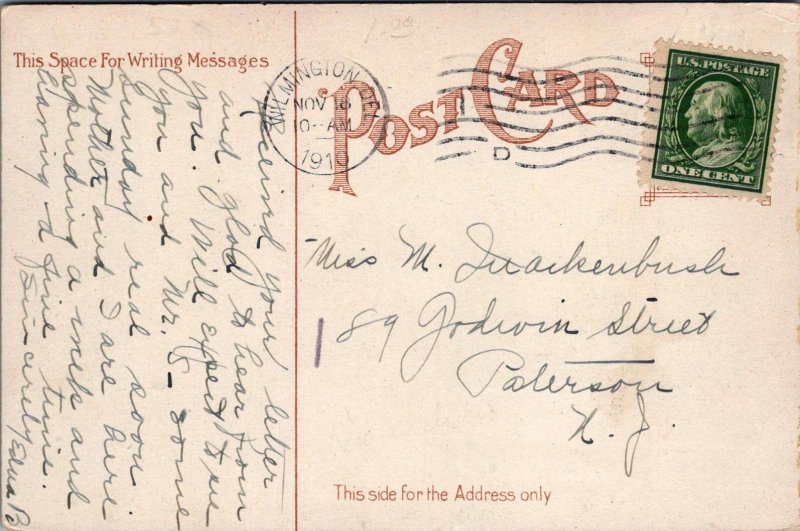 This Space For Writing Messages
POST CARD
WILMINGTON DEL.
NOV 18
10-AM
1910
D
U.S. POSTAGE
ONE CENT
Received your letter
and glad to hear from
you. Will expect to see
you and Mr. S— some
Sunday real soon.
Mother and I are here
spending a week and
having a fine time.
Sincerely, Edna
Miss M. Quackenbush
89 Godwin Street
Paterson
N. J.
This side for the Address only